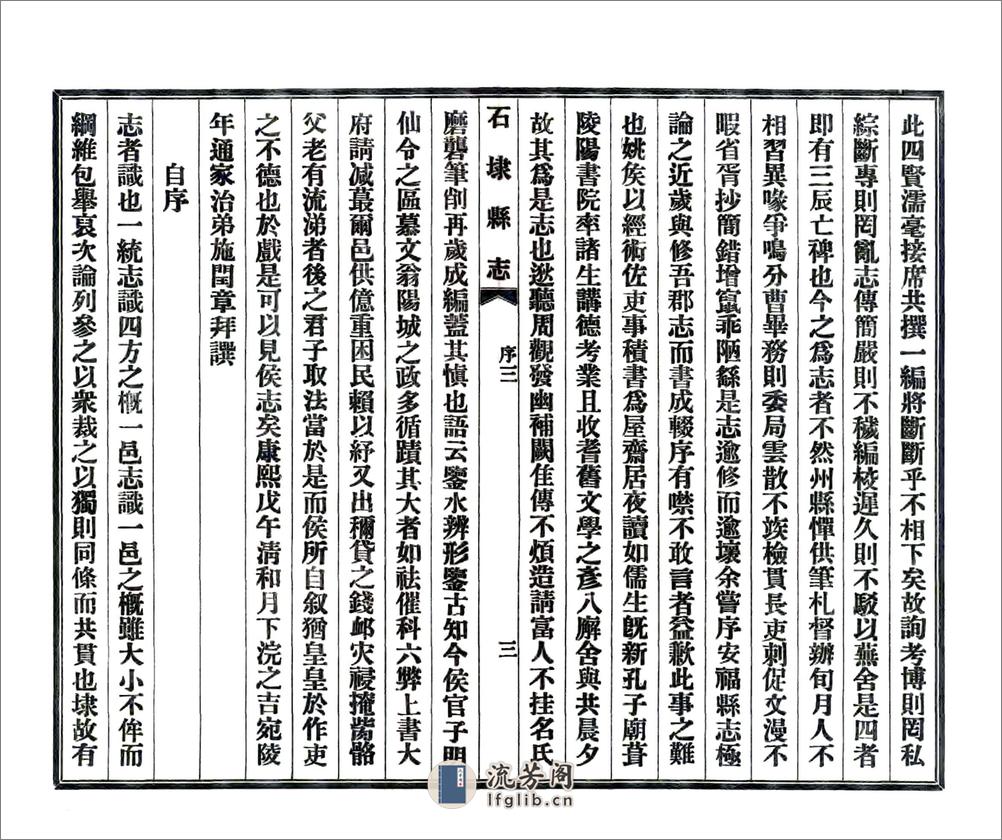 此四賢濡毫接席共撰一編將斷斷乎不相下矣故詢考博則罔私
綜斷專則罔亂志傳簡嚴則不穢編校遲久則不駁以蕪舍是四者
即有三辰亡裨也今之爲志者不然州縣憚供筆札督辦旬月人不
相習異喙爭鳴分曹畢務則委局雲散不竢檢貫長吏刺促文漫不
暇省胥抄簡錯增竄乖陋繇是志逾修而逾壞余嘗序安福縣志極
論之近歲與修吾郡志而書成輟序有噤不敢言者益歎此事之難
也姚矦以經術佐吏事積書爲屋齋居夜讀如儒生旣新孔子廟葺
陵陽書院率諸生講德考業且收耆舊文學之彥入廨舍與共晨夕
故其爲是志也逖聽周觀發幽補闕佳傳不煩造請富人不挂名氏
石埭縣志
序三
三
磨礱筆削再歲成編蓋其愼也語云鑒水辨形鑒古知今侯官子明
仙令之區慕文翁陽城之政多循蹟其大者如祛催科六弊上書大
府請减蕞爾邑供億重困民賴以紓又出稱貸之錢卹灾祲掩胔骼
父老有流涕者後之君子取法當於是而侯所自叙猶皇皇於作吏
之不德也於戲是可以見侯志矣康熙戊午淸和月下浣之吉宛陵
年通家治弟施閏章拜譔
自序
志者識也一統志識四方之槪一邑志識一邑之概雖大小不侔而
綱維包舉裒次論列參之以衆裁之以獨則同條而共貫也埭故有
流芳阁
lfglib.cn